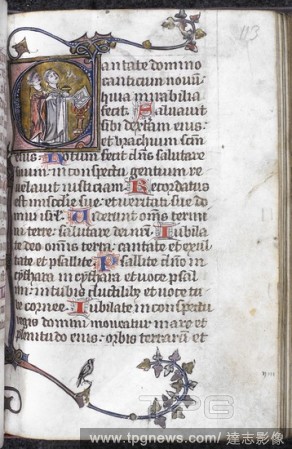 113
antate domino
canticum novum
quia mirabilia
fecit. Saluavit
sibi dextera eius:
et brachium scm
eius. Notum fecit dns salutare
suum: in conspectu gentium re
velavit iusticiam. Recordatus
est misericordie sue: et veritati sue do
mui isrl. Viderunt omns termi
ni terre: salutare dei nri. Iubila
te deo omns terra: cantate et exul
tate et psallite. Psallite dno in
cythara in cythara et voce psal
mi: in tubis ductilibus et voce tu
be cornee. Iubilate in conspectu
regis domini moveatur mare et
plenitudo eius: orbis terrarum et
TPG
www.tpgnews.com / 達志影像